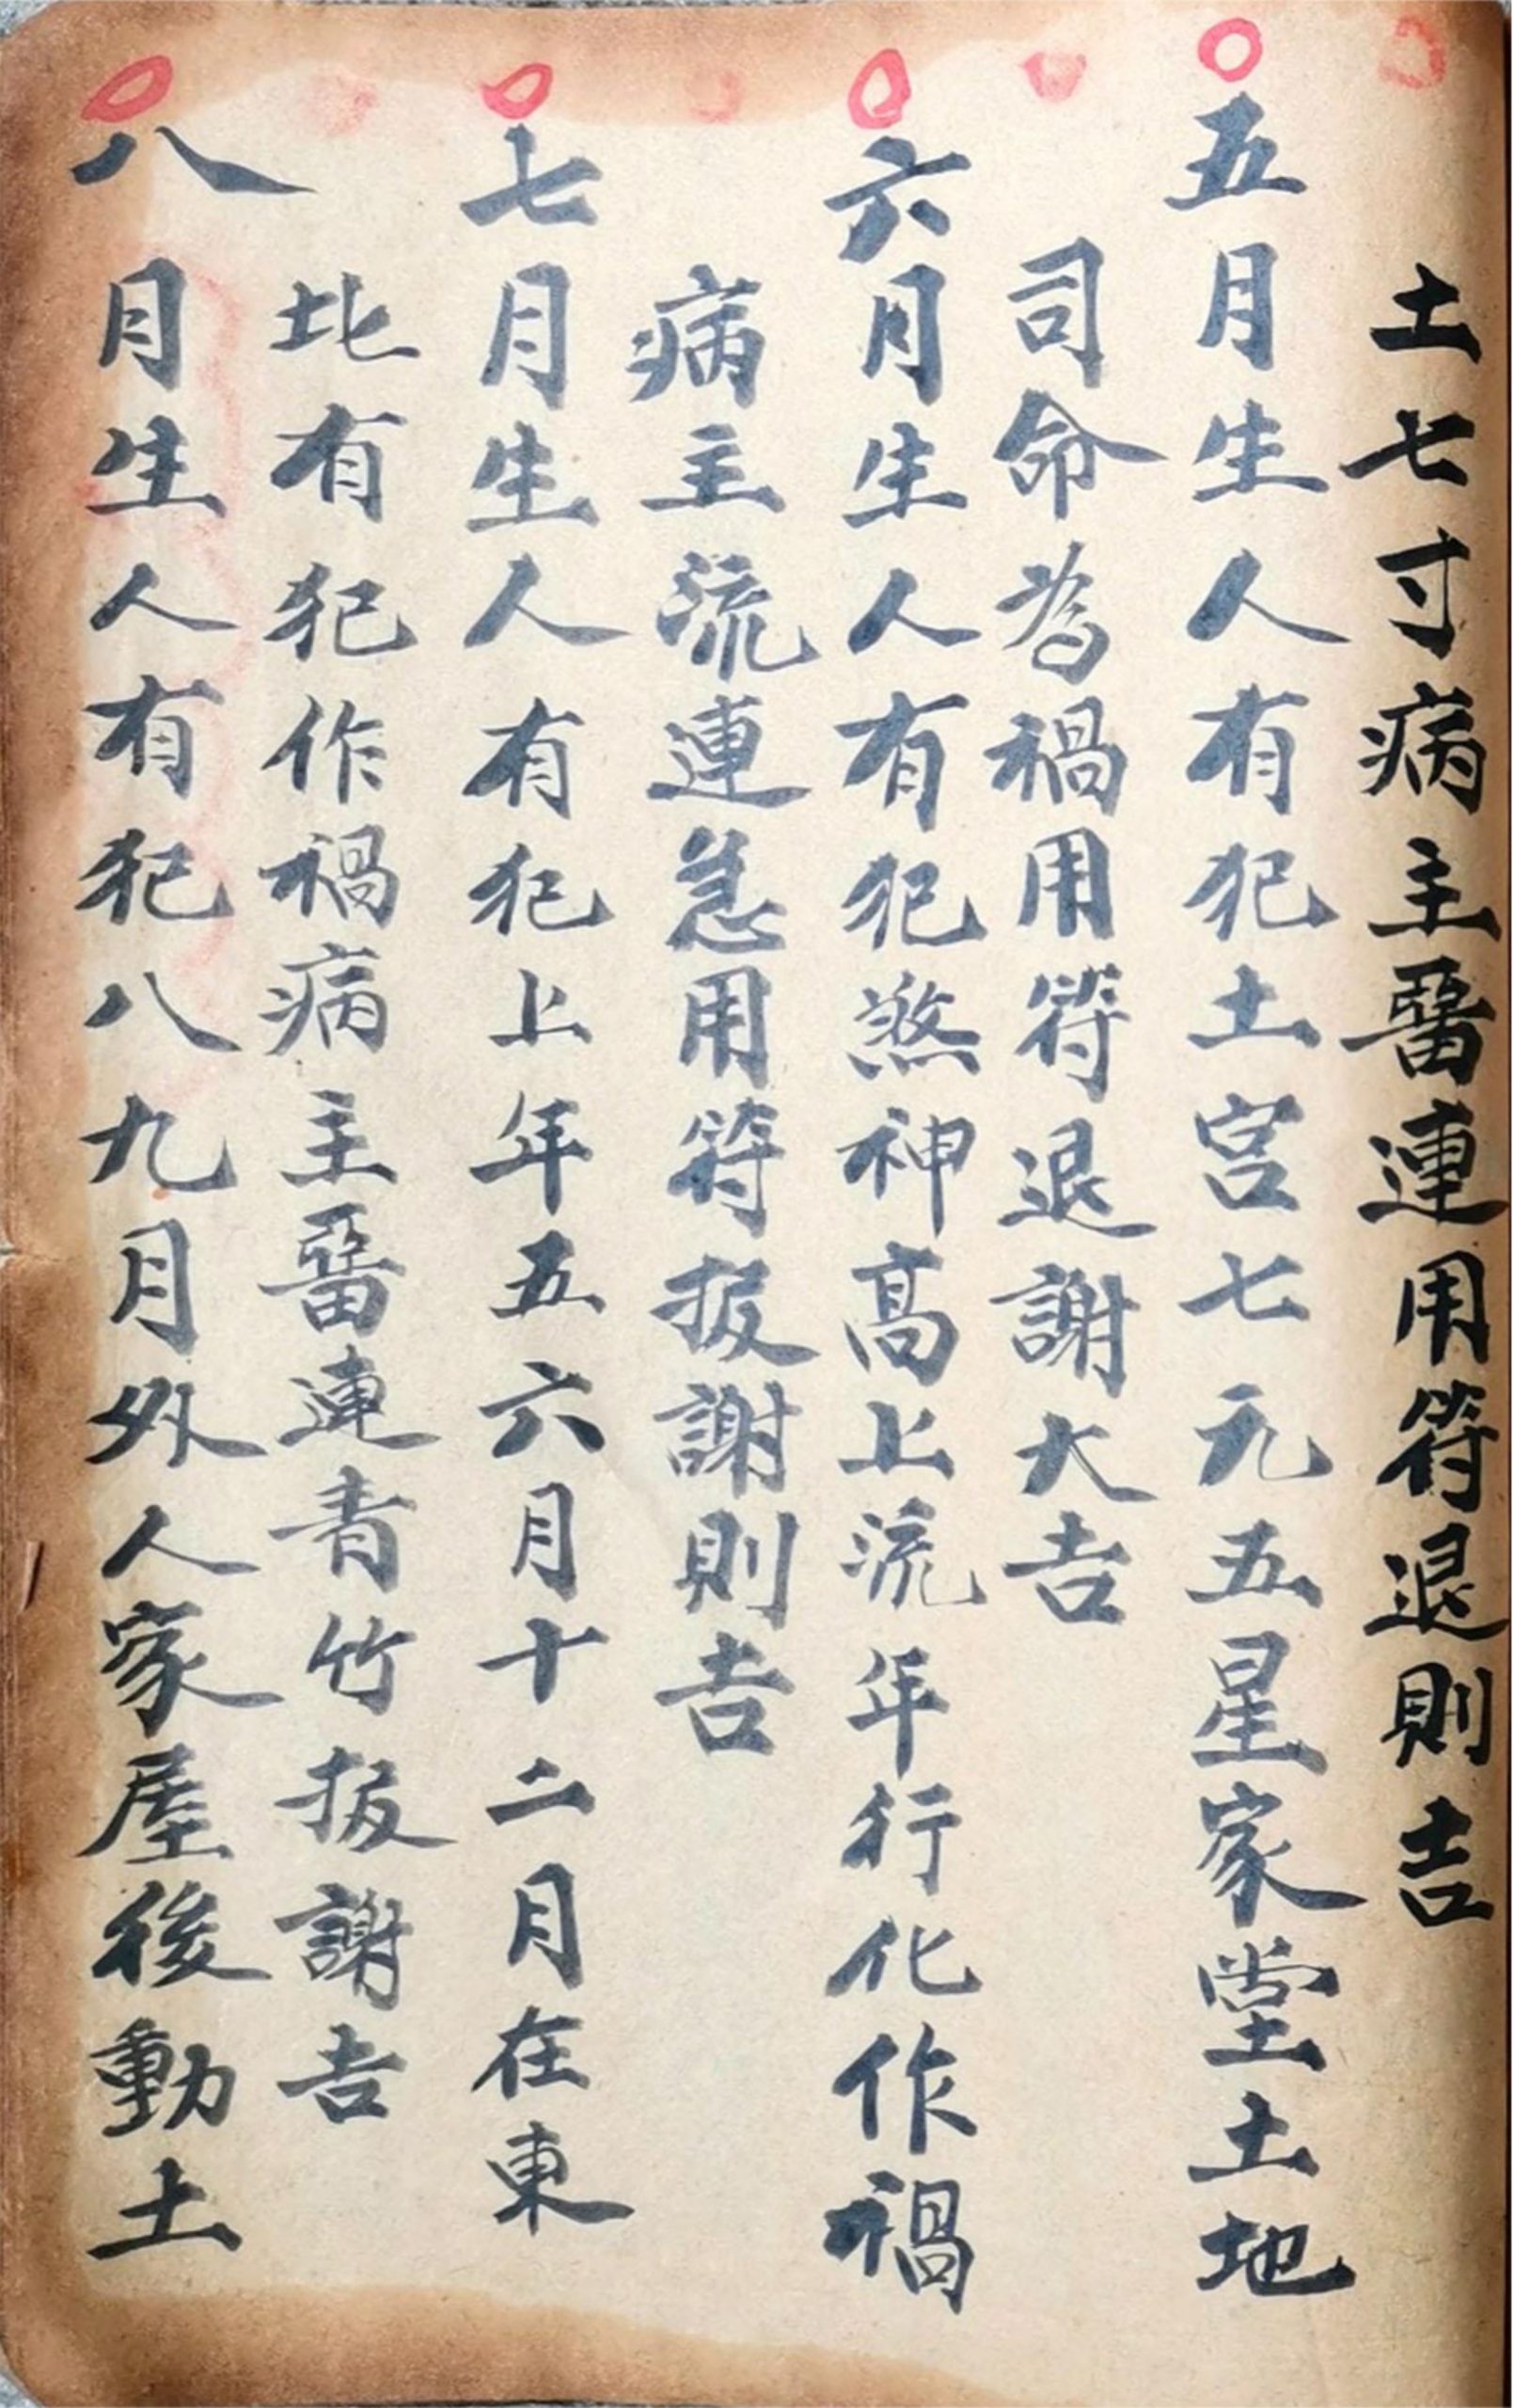 土七寸病主醫連用符退則吉
五月生人有犯土宫七元五星家堂土地
司命為禍用符退謝大吉
六月生人有犯煞神髙上流年行化作禍
病主流連急用符扳謝則吉
七月生人有犯上年五六月十二月在東
北有犯作禍病主醫連青竹扳謝吉
八月生人有犯八九月外人家屋後動土